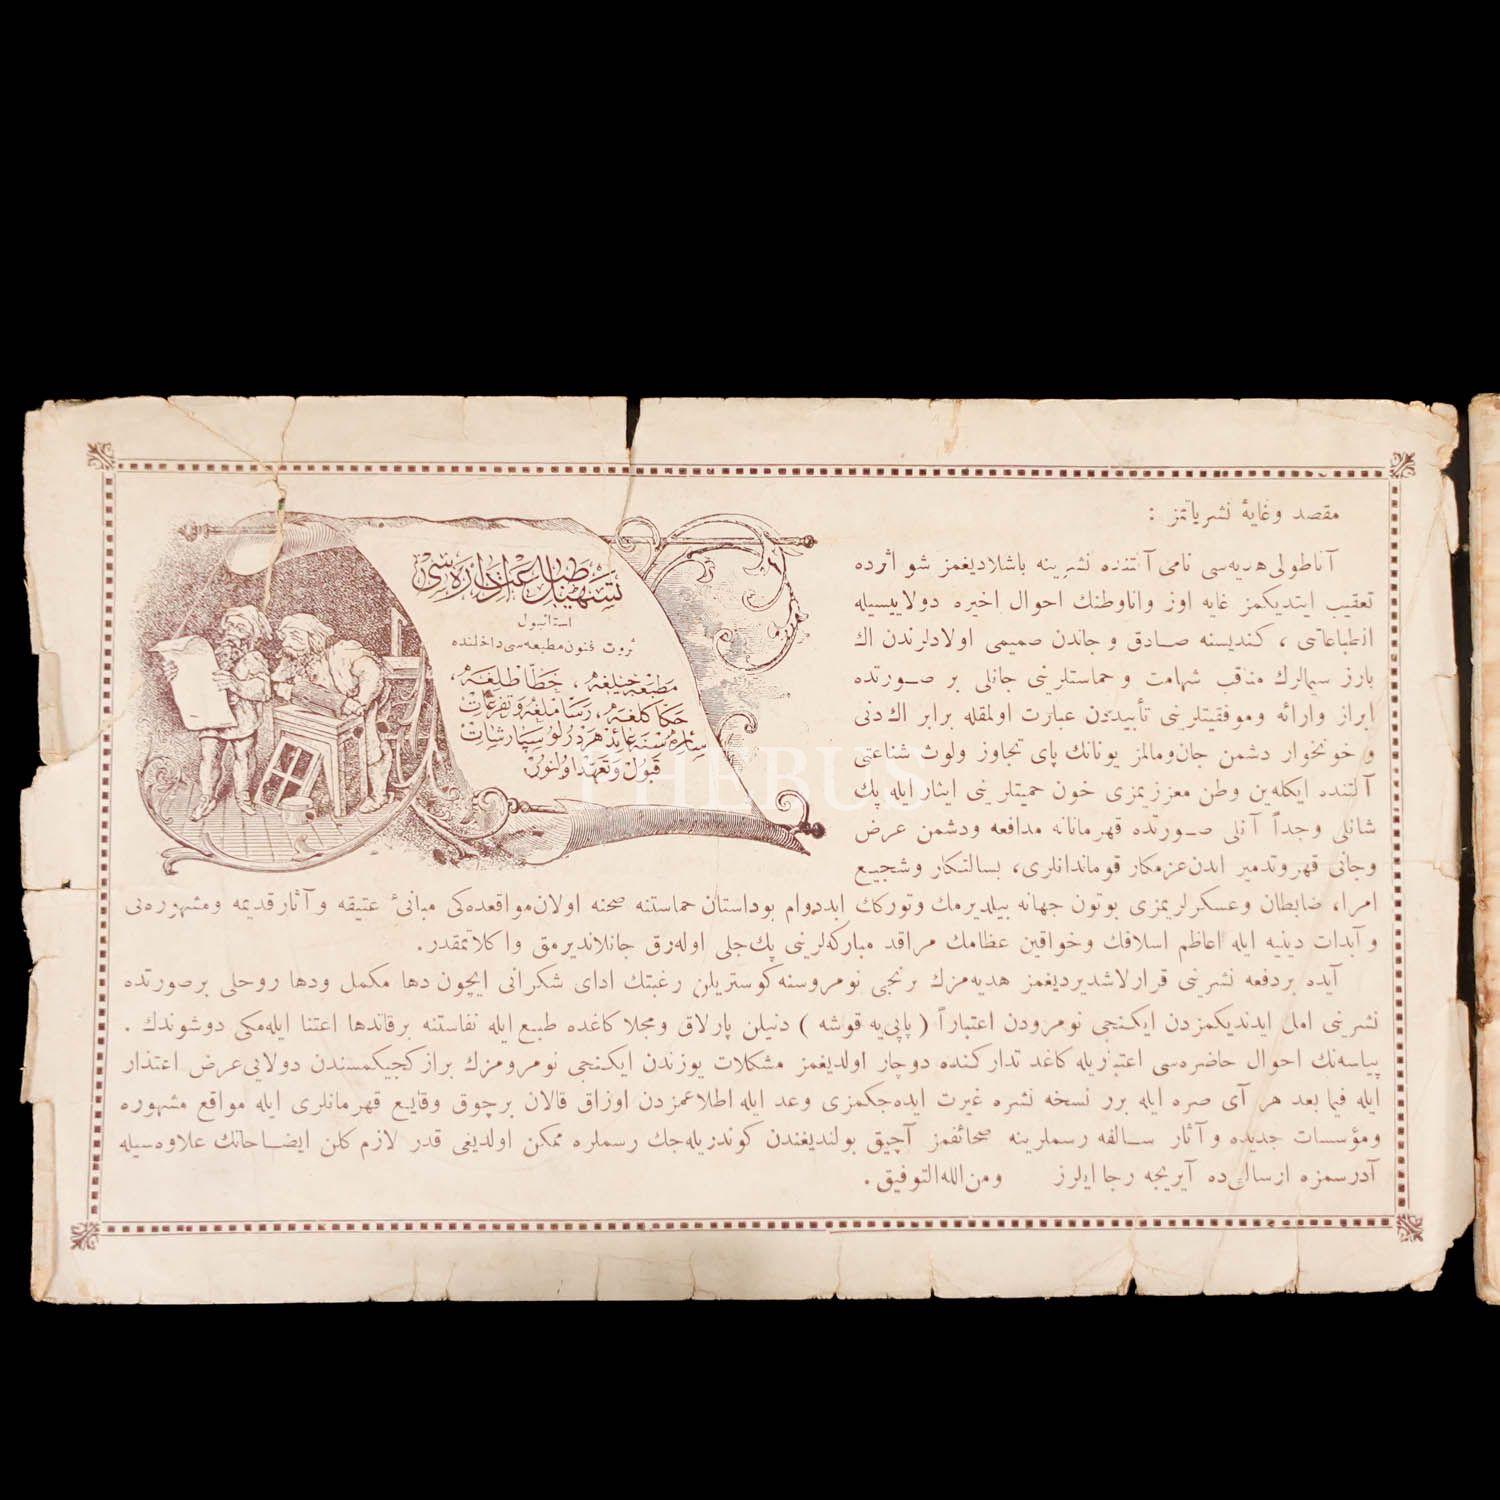 مقصد وغايهٔ نشرياتمز :
آناطولى هديه‌سى نامى آلتنده نشرينه باشلاديغمز شو اثرده
تعقيب ايتديكمز غايه اوز واناوطنك احوال اخيره دولاييسيله
انطباعاتى ، كنديسنه صادق و جاندن صميمى اولادلرندن اك
بارز سيمالرك مناقب شهامت و حماستلرينى جانلى بر صورتده
ابراز وارائه وموفقيتلرينى تأييددن عبارت اولمقله برابر اك دنى
و خونخوار دشمن جان‌ومالمز يونانك پاى تجاوز ولوث شناعتى
آلتنده ايكله‌ين وطن معززيمزى خون حميتلرينى ايثار ايله پك
شانلى وجداً آنلى صورتده قهرمانانه مدافعه ودشمن عرض
وجانى قهروتدمير ايدن‌عزمكار قوماندانلرى، بسالتكار وشجيع
امرا، ضابطان وعسكرلريمزى بوتون جهانه بيلديرمك وتوركك ابددوام بوداستان حماستنه صحنه اولان‌مواقعده‌كى مبانئ عتيقه و آثار قديمه ومشهوره‌نى
و آبدات دينيه ايله اعاظم اسلافك وخواقين عظامك مراقد مباركه‌لرينى پك‌جلى اوله‌رق جانلانديرمق واكلاتمقدر.
آيده بردفعه نشرينى قرارلاشديرديغمز هديه‌مزك برنجى نومروسنه كوستريلن رغبتك اداى شكرانى ايچون دها مكمل ودها روحلى برصورتده
نشرينى امل ايدنديكمزدن ايكنجى نومرودن اعتباراً ( پاپي‌يه قوشه ) دنيلن پارلاق ومجلا كاغده طبع ايله نفاستنه برقاتدها اعتنا ايله‌مكى دوشوندك .
پياسه‌نك احوال حاضره‌سى اعتباريله كاغد تداركنده دوچار اولديغمز مشكلات يوزندن ايكنجى نومرومزك براز كجيكمسندن دولايى عرض اعتذار
ايله فيما بعد هر آى صره ايله برر نسخه نشره غيرت ايده‌جكمزى وعد ايله اطلاعمزدن اوزاق قالان برچوق وقايع قهرمانلرى ايله مواقع مشهوره
ومؤسسات جديده و آثار سالفه رسملرينه صحائفمز آچيق بولنديغندن كوندريله‌جك رسملره ممكن اولديغى قدر لازم كلن ايضاحاتك علاوه‌سيله
آدرسمزه ارسالى‌ده آيريجه رجا ايلرز ومن الله التوفيق .
استانبول
ثروت فنون مطبعه‌سى داخلنده
مطبعه‌جيلغه ، خطاطلغه ،
حكاكلغه ، رساملغه وتفرعات
سائره‌سنه عائد هردرلو سپارشات
قبول وتعهد اولنور.
PHEBUS